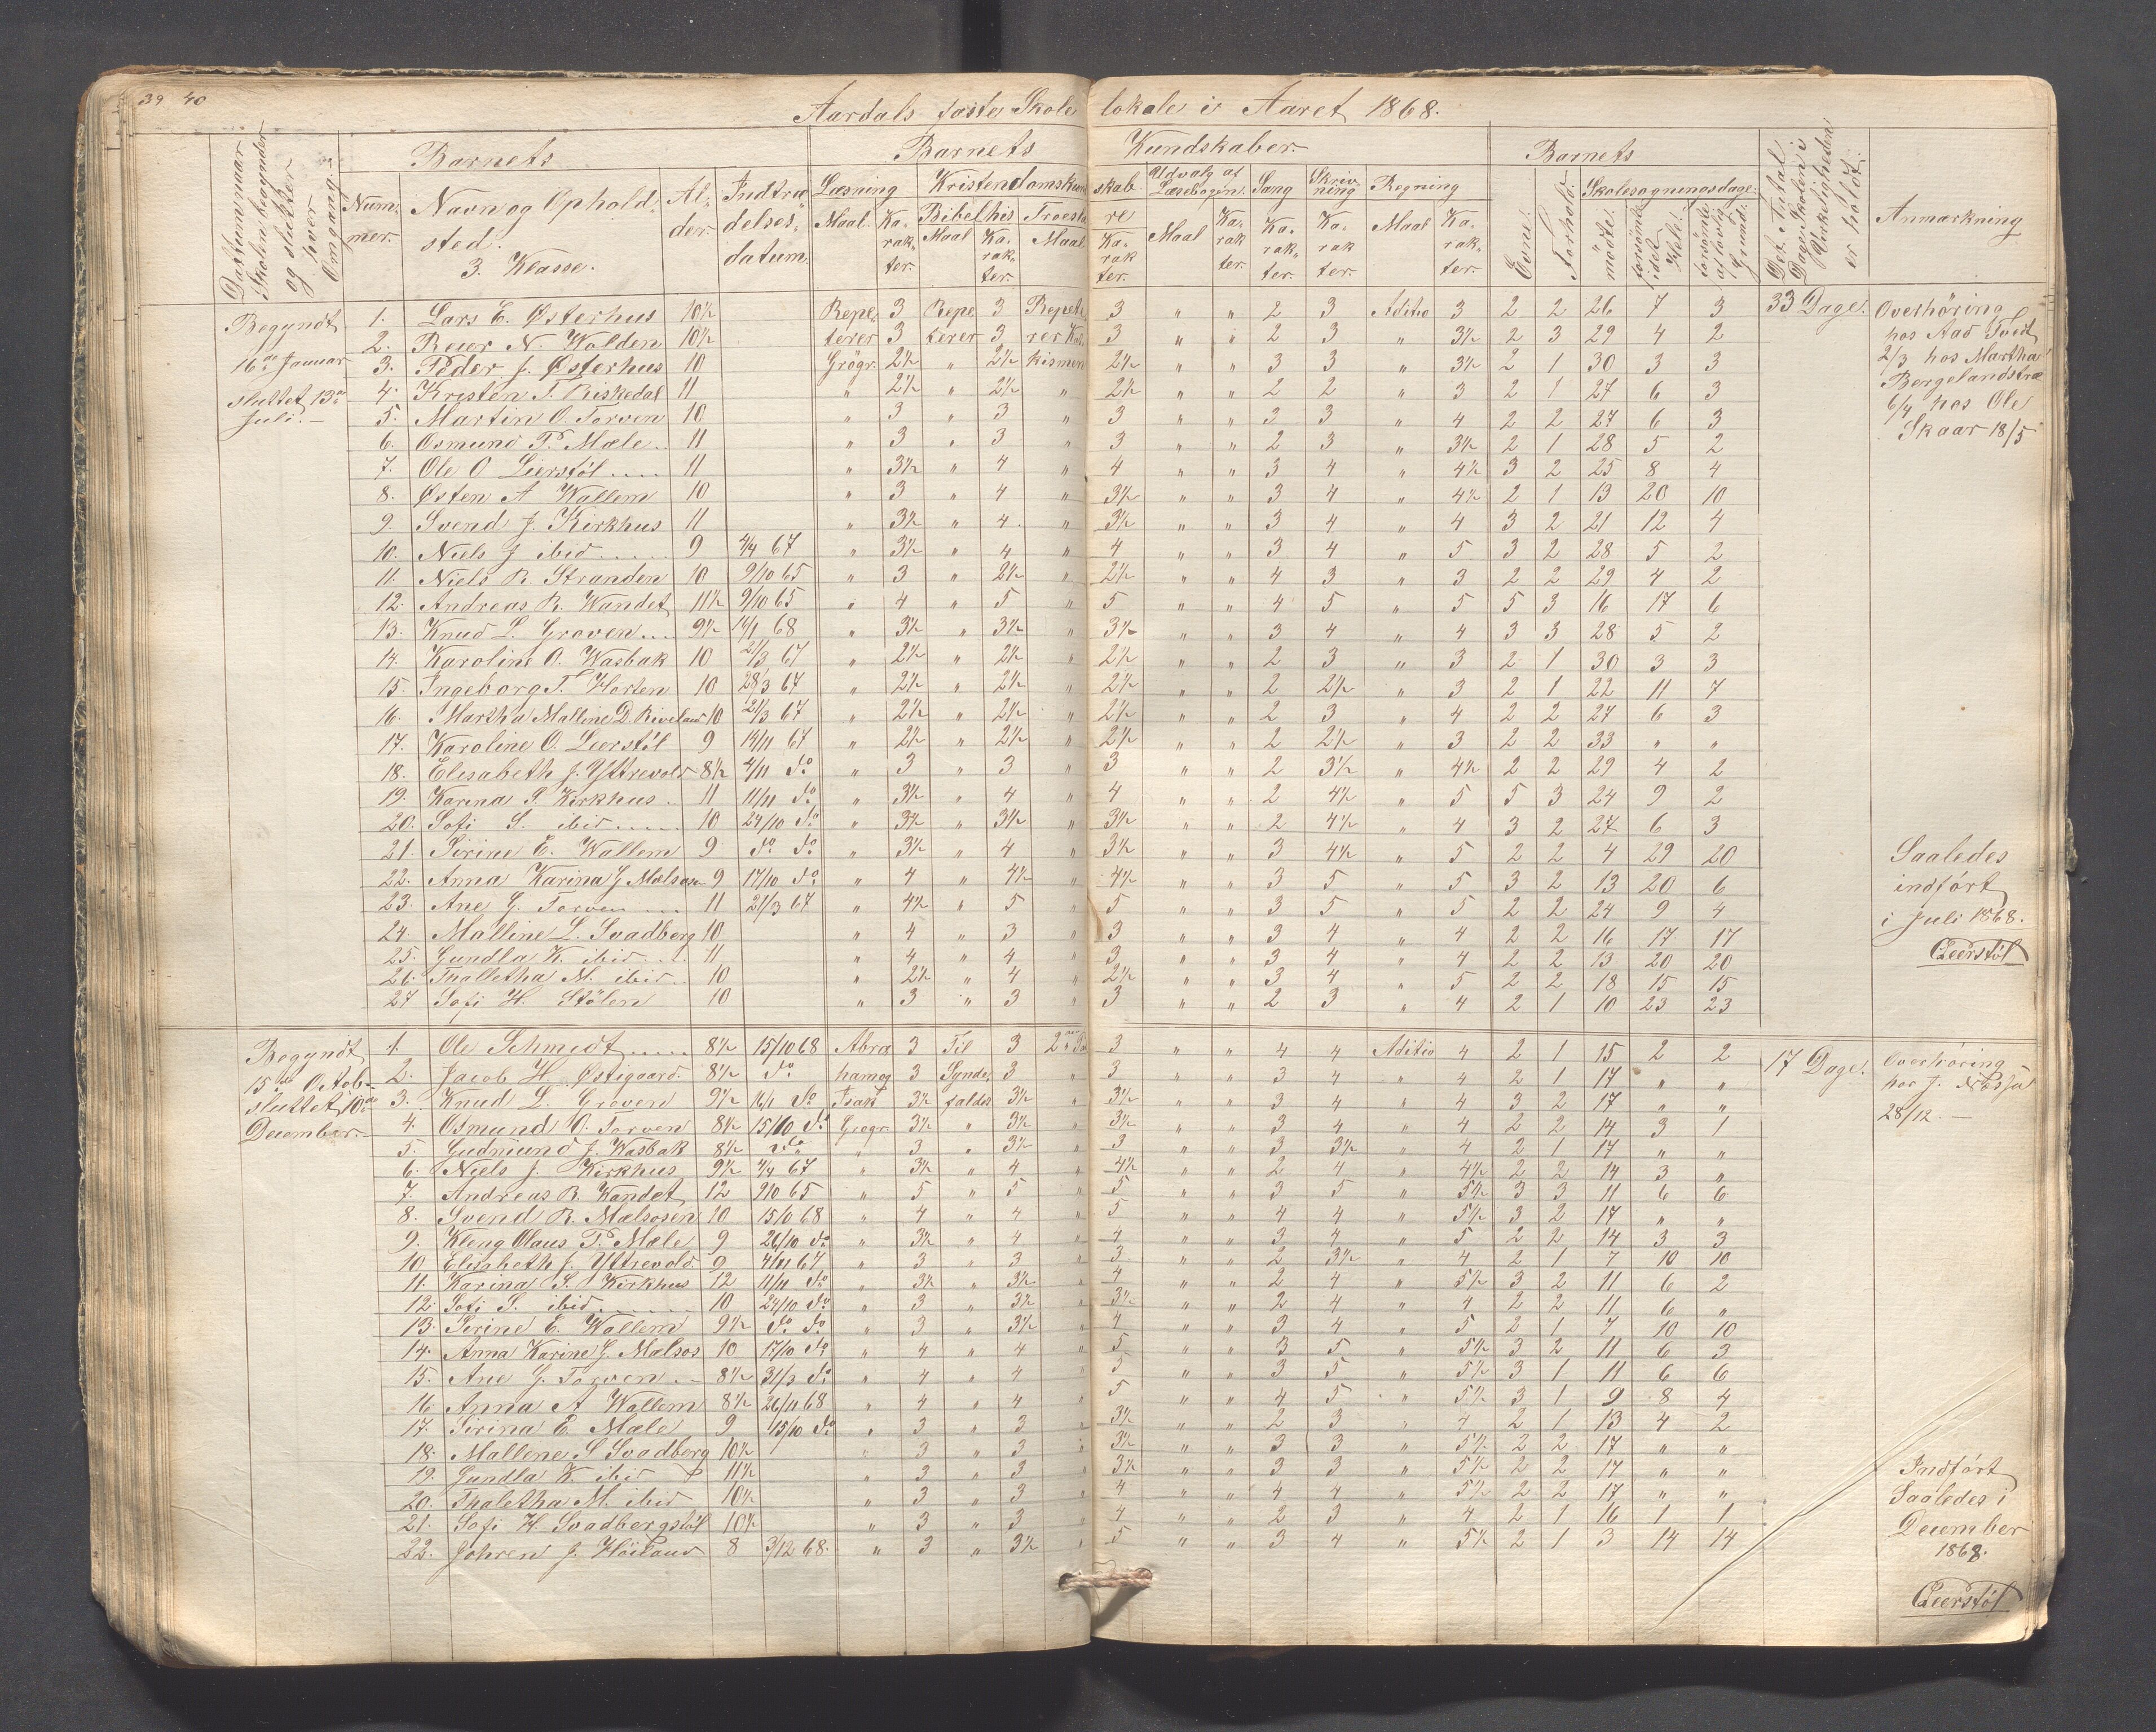 39 40
Aardals faste Skole lokale i Aaret 1868.
Datum naar Skolen begynder og slutter hver Omgang.
Barnets
Barnets Kundskaber.
Barnets
Det Antal Dage Skolen i Virkeligheden er holdt.
Anmærkning
Num-mer. Navn og Ophold-sted. 3. Klasse. Al-der. Indtræ-delses-datum.
Læsning Kristendomskund-skab. Udvalg af Læsebogen. Sang Skriv-ning Regning
Maal Ka-rak-ter. Bibelhis Maal Ka-rak-ter. Troesla Maal re Ka-rak-ter. Maal Ka-rak-ter. Ka-rak-ter. Ka-rak-ter. Maal Ka-rak-ter.
Evne. Forhold. Skolesøgningsdage. mødte. forsømte i det Hele. forsømte af lovlig Grund.
Begyndt 16de Januar sluttet 13de Juli.
1. Lars E. Østerhus 10½ Repe- 3 Repe 3 Repete 3 " " 2 3 Aditio 3 2 2 26 7 3 33 Dage.
2. Reier N. Volden 10½ terer 3 terer 3 rer Ka- 3 " " 2 3 " 3½ 2 3 29 4 2
3. Peder J. Østerhus 10 Grøgr. 2½ " 2½ kismen 2½ " " 3 3 " 3½ 2 1 30 3 3
4. Kristen T. Riskedal 11 " 2½ " 2½ " 2½ " " 2 2 " 3 2 1 27 6 3
5. Martin O. Torven 10 " 3 " 3 " 3 " " 3 3 " 4 2 2 27 6 3
6. Osmund P. Mæle 11 " 3 " 3 " 3 " " 2 3 " 3½ 2 1 28 5 2
7. Ole O Leerstøl 11 " 3½ " 4 " 4 " " 3 4 " 4½ 3 2 25 8 4
8. Østen A Wallem 10 " 3 " 4 " 3½ " " 3 4 " 4½ 2 1 13 20 10
9. Svend J. Kirkhus 11 " 3½ " 4 " 3½ " " 3 4 " 4 3 2 21 12 4
10. Niels J ibid 9 4/4 67 " 3½ " 4 " 4 " " 3 4 " 5 3 2 28 5 2
11. Niels R. Stranden 10 9/10 65 " 3 " 2½ " 2½ " " 4 3 " 3 2 2 29 4 2
12. Andreas R. Wandet 11½ 9/10 65 " 4 " 5 " 5 " " 4 5 " 5 5 3 16 17 6
13. Knud L. Groven 9½ 16/1 68 " 3½ " 3½ " 3½ " " 3 4 " 4 3 3 28 5 2
14. Karoline O. Wasbak 10 21/3 67 " 2½ " 2½ " 2½ " " 2 3 " 3 2 1 30 3 3
15. Ingeborg T. Horten 10 28/3 67 " 2½ " 2½ " 2½ " " 2 2½ " 3 2 1 22 11 7
16. Martha Malline D. Riveland 10 21/3 67 " 2½ " 2½ " 2½ " " 2 3 " 4 2 2 27 6 3
17. Karoline O. Leerstøl 9 14/11 67 " 2½ " 2½ " 2½ " " 2 2½ " 3 2 2 33 " "
18. Elisabeth J. Yttrevold 8½ 4/11 do " 3 " 3 " 3 " " 2 3½ " 4½ 2 2 29 4 2
19. Karina S. Kirkhus 11 11/11 do " 3½ " 4 " 4 " " 2 4½ " 5 5 3 24 9 2
20. Sofi S. ibid 10 24/10 do " 3½ " 3½ " 3½ " " 2 4½ " 4 3 2 27 6 3
21. Sirine E. Wallem 9 do do " 3½ " 4 " 3½ " " 3 4½ " 5 2 2 4 29 20
22. Anna Karina G Mælsosen 9 17/10 do " 4 " 4½ " 4½ " " 3 5 " 5 3 2 13 20 6
23. Ane G. Torven 11 21/3 67 " 4½ " 5 " 5 " " 3 5 " 5 2 2 24 9 4
24. Malline L. Svadberg 10 " 4 " 3 " 3 " " 3 4 " 4 2 2 16 17 17
25. Gundla K. ibid 11 " 4 " 4 " 3 " " 3 4 " 4 2 2 13 20 20
26. Thalletha M. ibid 10 " 2½ " 4 " 2½ " " 3 4 " 5 2 2 18 15 15
27 Sofi H. Stølen 10 " 3 " 3 " 3 " " 2 3 " 4 2 1 10 23 23
Overhøring
hos Aad Tveit
2/3 hos Martha
Bergelandstræ
6/4 hos Ole
Skaar 18/5
Saaledes
indført
i Juli 1868.
Leerstøl
Begyndt 15de Octob- sluttet 10de December.
1. Ole Schmidt 8½ 15/10 68 Abra 3 Til 3 3 " " 4 4 Aditio 4 2 1 15 2 2 17 Dage.
2. Jacob H. Østigaard 8½ do ham og 3 Synde 3 " 3 " " 3 4 " 4 2 1 17 " "
3. Knud L. Groven 9½ 16/1 do Isak 3½ faldet 3½ " 3½ " " 3 4 " 4 3 2 17 " "
4. Osmund O. Torven 8½ 15/10 do Grøgr. 3½ " 3½ " 3½ " " 3 4 " 4 2 2 14 3 1
5. Gudmund J. Wasbak 8½ do " 3 " 3½ " 3 " " 3 3½ " 4 2 1 17 " "
6. Niels J. Kirkhus 9½ 4/4 67 " 3½ " 4 " 4½ " " 2 4 " 4½ 2 2 14 3 "
7. Andreas R. Wandet 12 9/10 65 " 5 " 5 " 5 " " 3 5 " 5½ 3 3 11 6 6
8. Svend R. Mælsosen 10 15/10 68 " 4 " 4 " 5 " " 4 4 " 5½ 3 2 17 " "
9. Kleng Olaus P. Mæle 9 26/10 do " 3½ " 4 " 4 " " 3 4 " 5 2 2 14 3 3
10 Elisabeth J. Yttrevold 9 4/11 67 " 3 " 3 " 3 " " 2 3½ " 4 2 1 7 10 10
11. Karina S. Kirkhus 12 11/11 do " 3½ " 3½ " 4 " " 2 4 " 5½ 3 2 11 6 2
12. Sofi S. ibid 10 24/10 do " 3 " 3½ " 3½ " " 2 4 " 4 2 2 11 6 "
13. Sirine E. Wallem 9½ do do " 3 " 3½ " 4 " " 3 4 " 5 2 1 7 10 10
14. Anna Karine G. Mælsos 10 17/10 do " 4 " 4 " 5 " " 3 5 " 5½ 3 2 11 6 3
15. Ane G. Torven 8½ 31/3 do " 4 " 4 " 5 " " 3 5 " 5½ 3 1 11 6 6
16 Anna A Wallem 8½ 26/11 68 " 4 " 4 5 " " 4 5 " 5½ 3 1 9 8 4
17. Sirina E. Mæle 9 15/10 do " 3 " 3 " 3½ " " 2 3 " 4 2 1 13 4 2
18. Mallene L Svadberg 10½ " 3 " 3 " 3½ " " 3 3 " 5½ 2 2 17 " "
19. Gundla K. ibid 11½ " 3 " 3 " 3½ " " 3 3 " 5½ 2 2 17 " "
20. Thaletha M. ibid 10½ " 3 " 3 " 4 " " 4 4 " 5½ 2 2 17 " "
21. Sofi H. Svadbergstøl 10½ " 3 " 3 " 4 " " 2 3 " 4 2 1 16 1 1
22. Johren J. Høiland 8 3/12 68. " 3 " 3½ " 5 " " 3 4 " 5½ 2 1 3 14 14
Overhøring
hos J.
28/12.
Indført
Saaledes i
December
1868.
Leerstøl